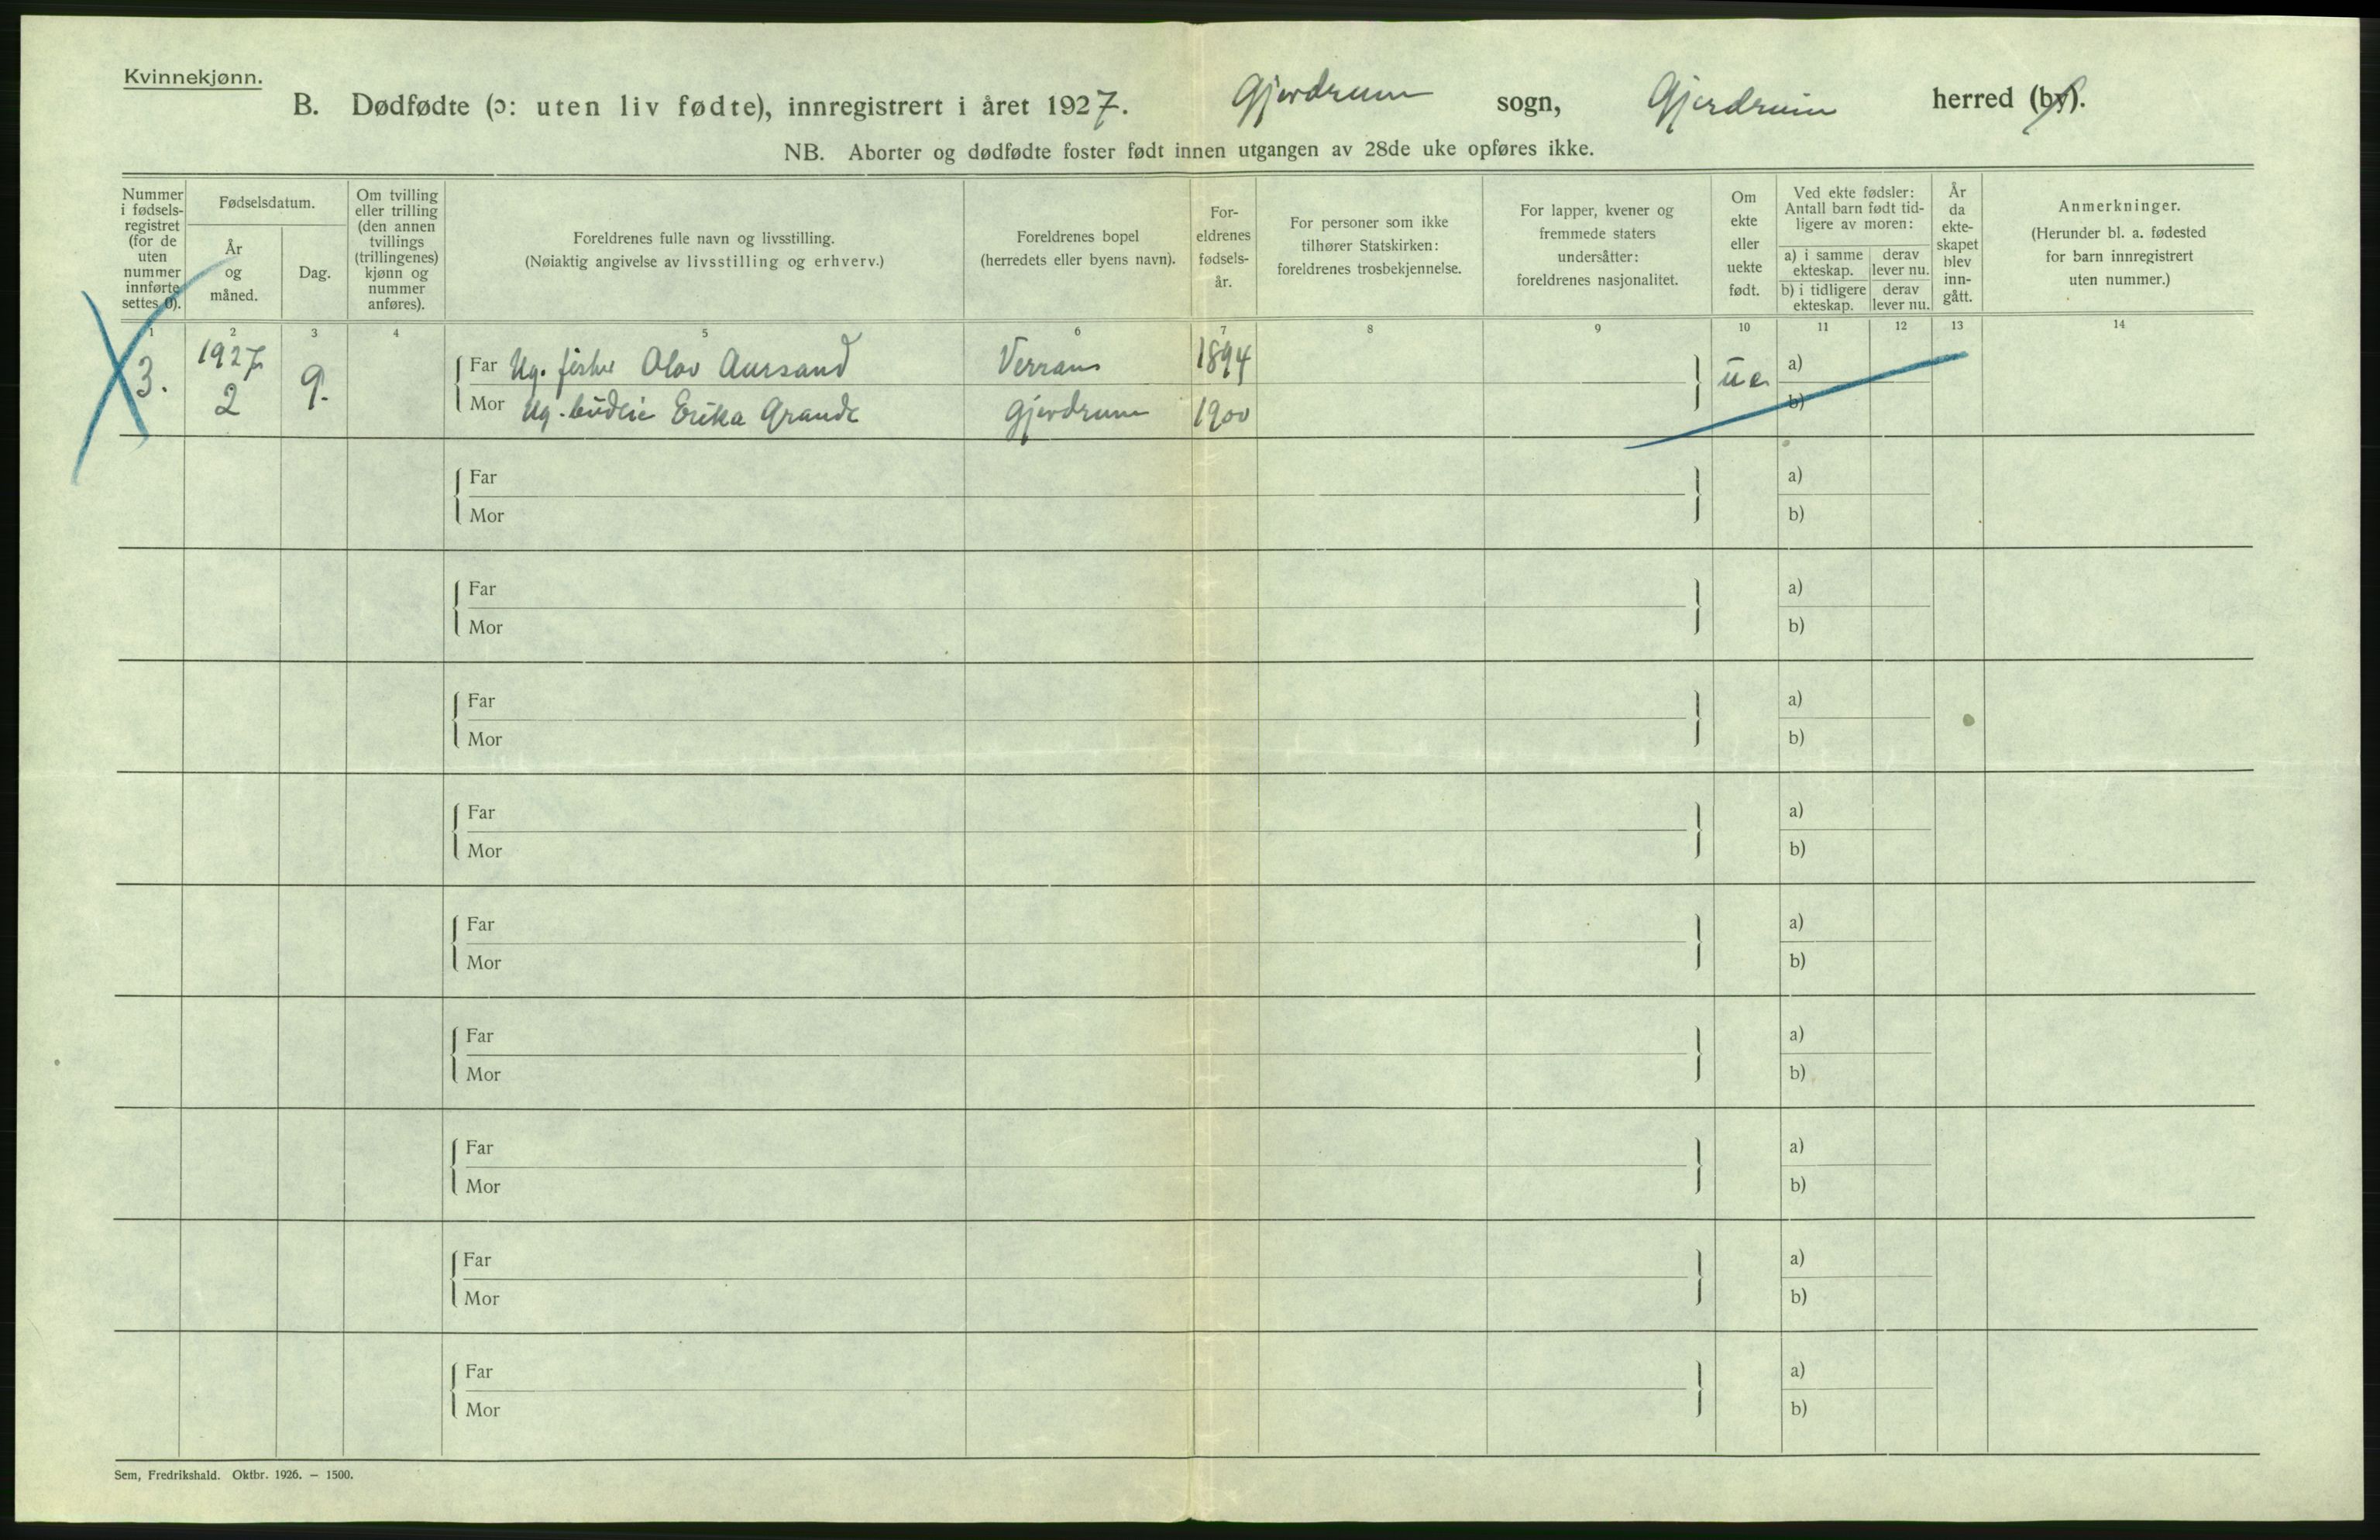 Kvinnekjønn.
B. Dødfødte (ɔ: uten liv fødte), innregistrert i året 1927. Gjerdrum sogn, Gjerdrum herred (by).
NB. Aborter og dødfødte foster født innen utgangen av 28de uke opføres ikke.
Nummer i fødsels-registret (for de uten nummer innførte settes 0).
Fødselsdatum.
År og måned.
Dag.
Om tvilling eller trilling (den annen tvillings (trillingenes) kjønn og nummer anføres).
Foreldrenes fulle navn og livsstilling.
(Nøiaktig angivelse av livsstilling og erhverv.)
Foreldrenes bopel
(herredets eller byens navn).
For-eldrenes fødsels-år.
For personer som ikke tilhører Statskirken: foreldrenes trosbekjennelse.
For lapper, kvener og fremmede staters undersåtter: foreldrenes nasjonalitet.
Om ekte eller uekte født.
Ved ekte fødsler: Antall barn født tid-ligere av moren:
a) i samme ekteskap.
derav lever nu.
b) i tidligere ekteskap.
derav lever nu.
År da ekte-skapet blev inn-gått.
Anmerkninger.
(Herunder bl. a. fødested for barn innregistrert uten nummer.)
1 2 3 4 5 6 7 8 9 10 11 12 13 14
3. 1927 2 9. Far Ug. fisker Olav Aursand Verran 1894 ue a)
Mor Ug. budeie Erika Grande Gjerdrum 1900 b)
Far a)
Mor b)
Far a)
Mor b)
Far a)
Mor b)
Far a)
Mor b)
Far a)
Mor b)
Far a)
Mor b)
Far a)
Mor b)
Far a)
Mor b)
Far a)
Mor b)
Sem, Fredrikshald. Oktbr. 1926. — 1500.